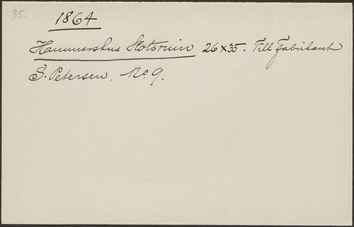 35.
1864
Hammershus Slotsruin 26x35. Till Fabrikant
S. Petersen. No 9.